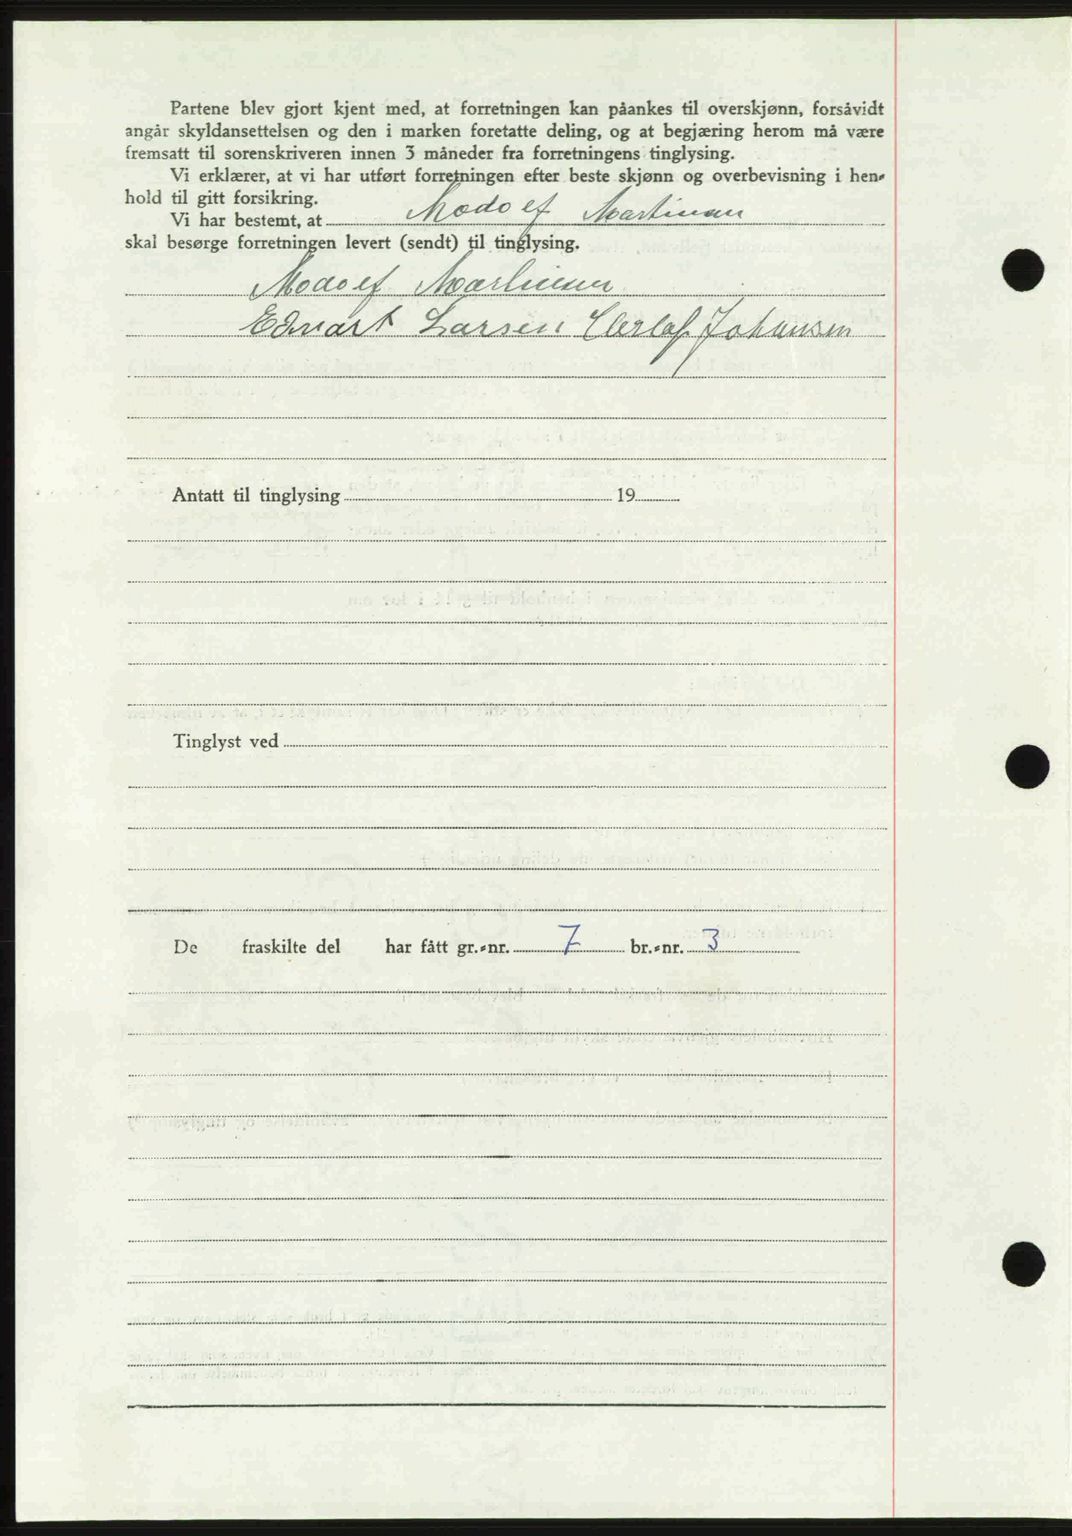 Partene blev gjort kjent med, at forretningen kan påankes til overskjønn, forsåvidt
angår skyldansettelsen og den i marken foretatte deling, og at begjæring herom må være
fremsatt til sorenskriveren innen 3 måneder fra forretningens tinglysing.
Vi erklærer, at vi har utført forretningen efter beste skjønn og overbevisning i hen-
hold til gitt forsikring.
Vi har bestemt, at Modolf Martinsen
skal besørge forretningen levert (sendt) til tinglysing.
Modolf Martinsen
Edvart Larsen Johansen
Antatt til tinglysing 19
Tinglyst ved
De fraskilte del har fått gr.-nr. 7 br.-nr. 3